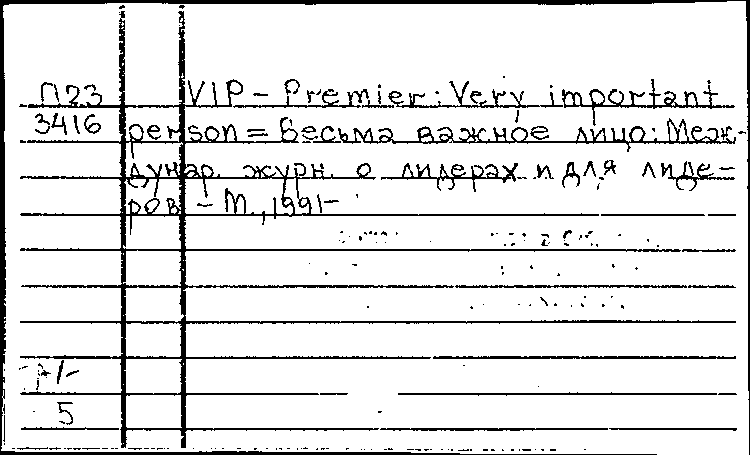 П23 VIP - Premier: Very important
3416 person = Весьма важное лицо: Меж-
дунар. журн. о лидерах и для лиде-
ров. - М., 1991-
5